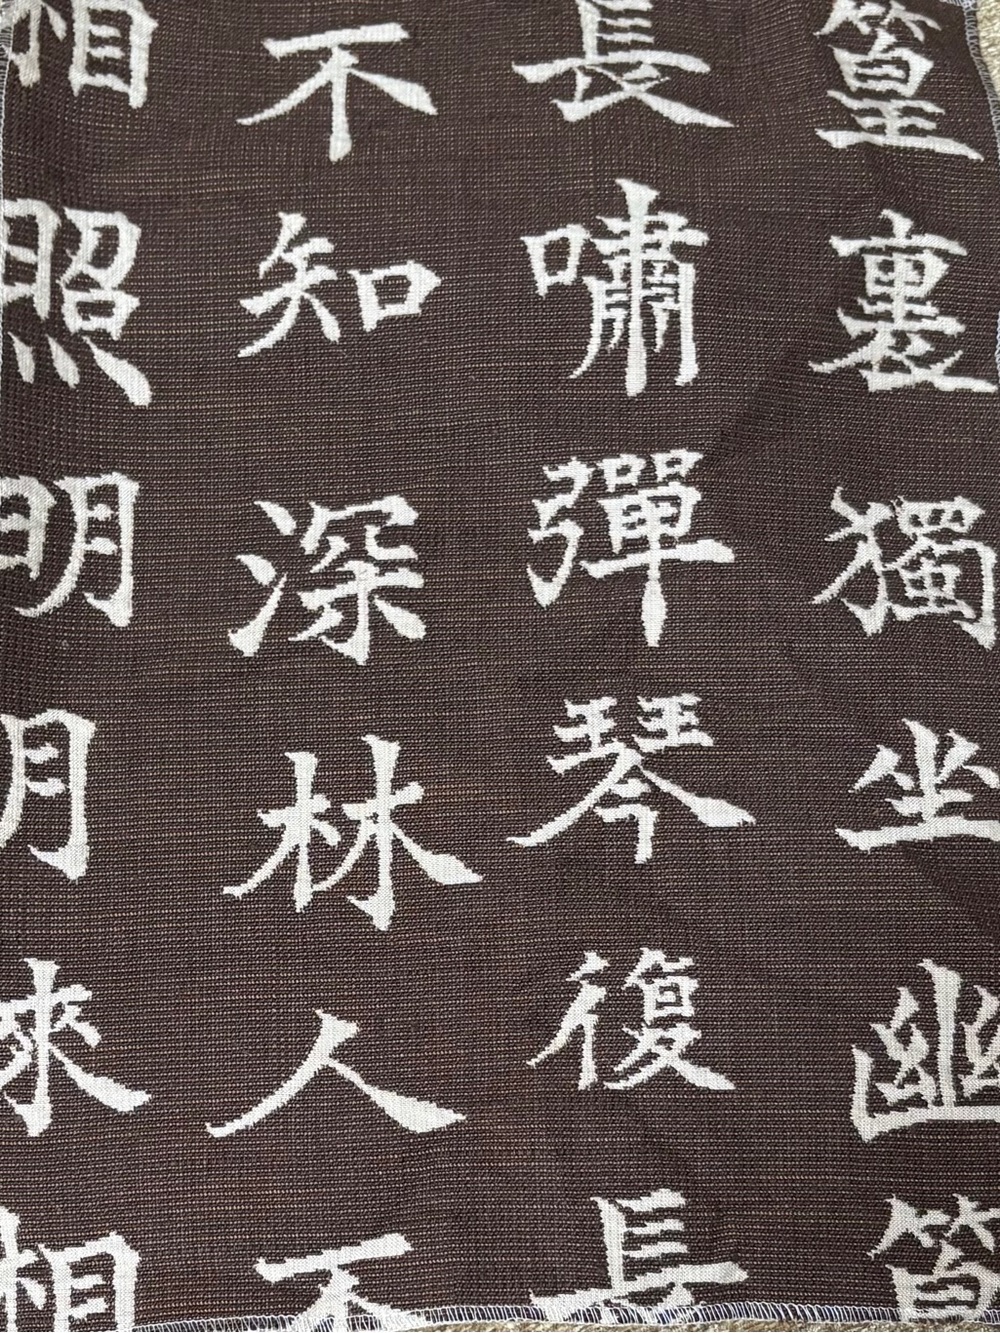 篁裏獨坐幽篁
長嘯彈琴復長
不知深林人不
相照明月來相